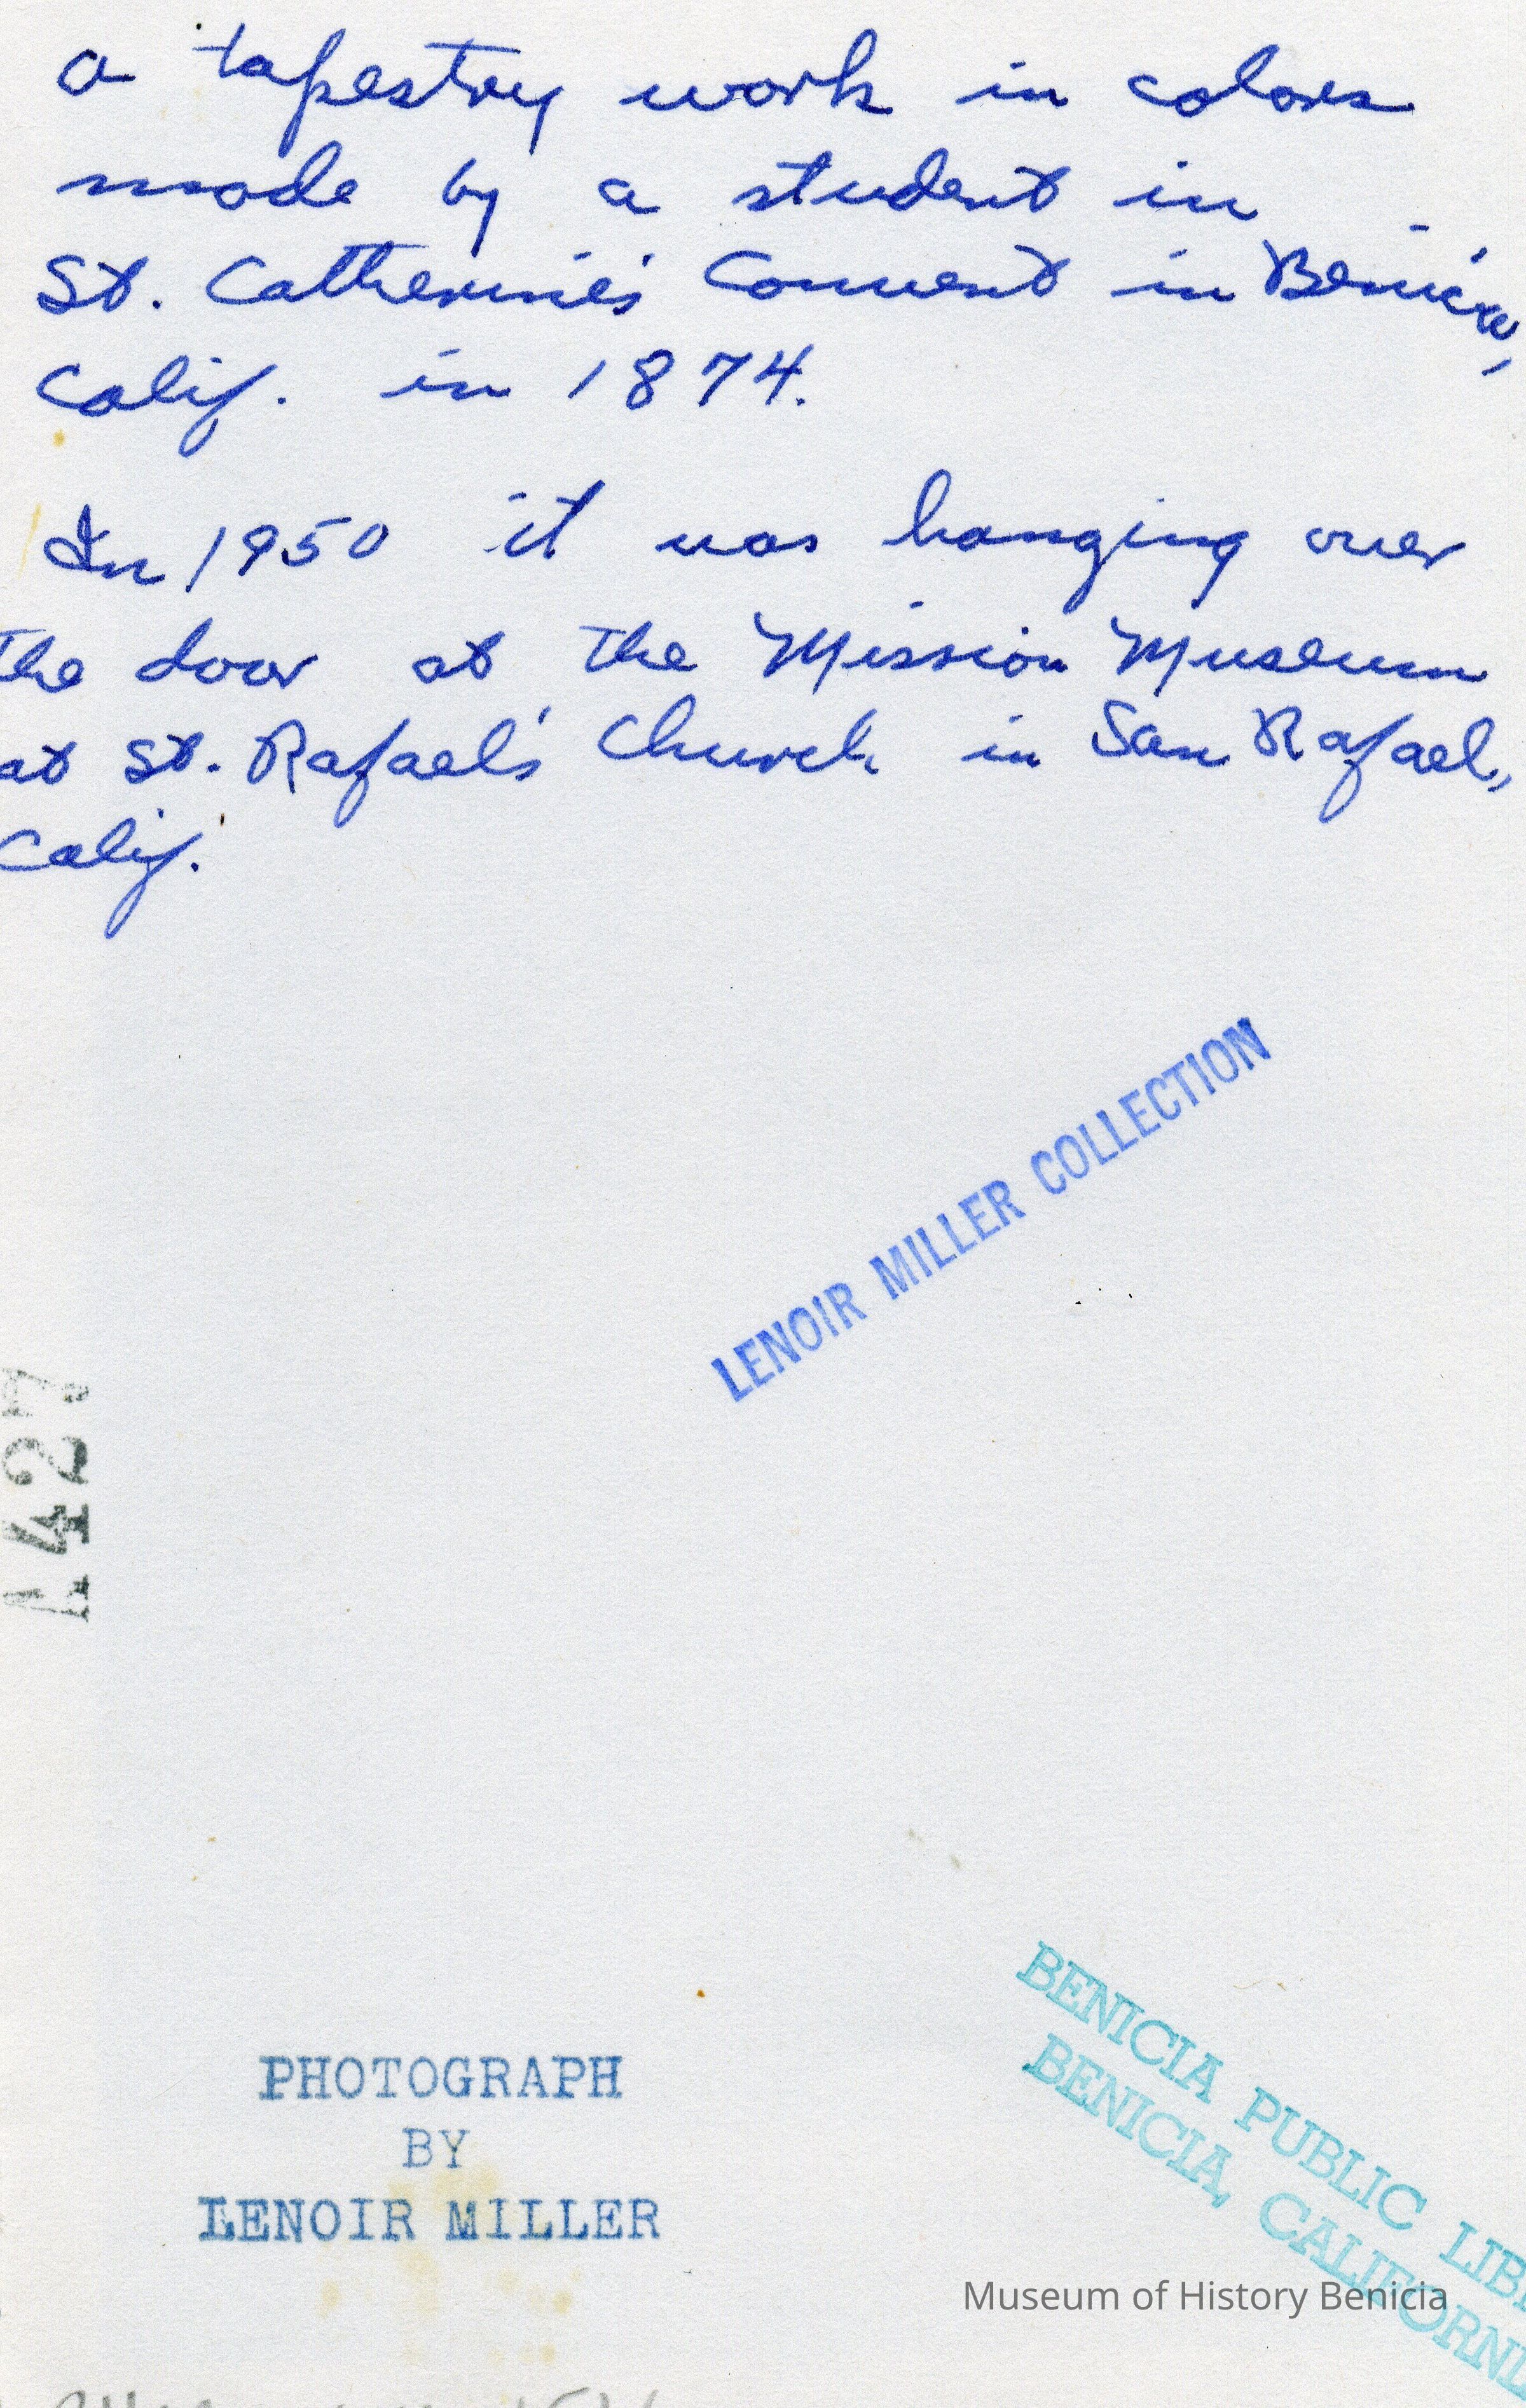 a tapestry work in colors
made by a student in
St. Catherine's Convent in Benicia,
Calif. in 1874.
In 1950 it was hanging over
the door at the Mission Museum
at St. Rafael's Church in San Rafael,
Calif.
LENOIR MILLER COLLECTION
1427
PHOTOGRAPH
BY
LENOIR MILLER
BENICIA PUBLIC LIB
BENICIA, CALIFORNI
Museum of History Benicia